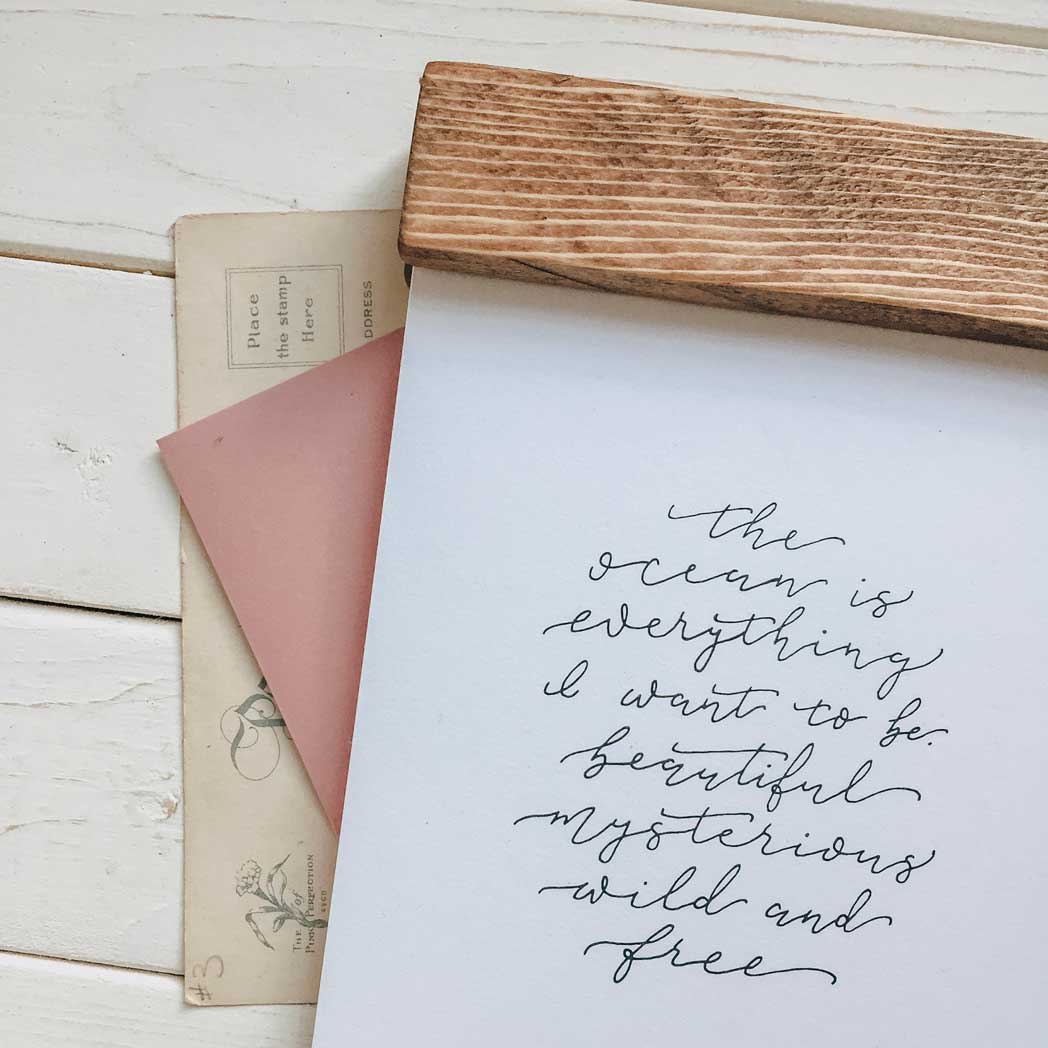 the
ocean is
everything
I want to be.
beautiful
mysterious
wild and
free
Place
the stamp
Here
THE
of
PINK PERFECTION
#3